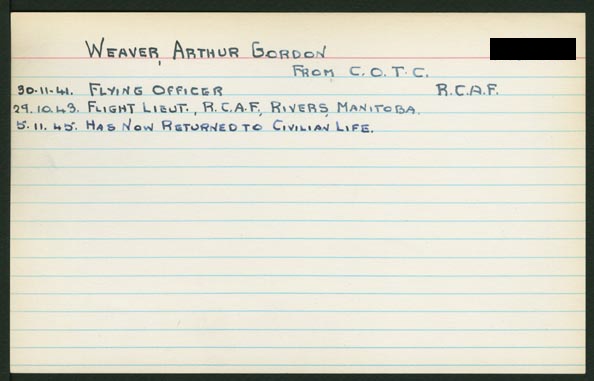 WEAVER, ARTHUR GORDON
FROM C.O.T.C.
30.11.41. FLYING OFFICER R.C.A.F.
29.10.43. FLIGHT LIEUT., R.C.A.F., RIVERS, MANITOBA.
5.11.45. HAS NOW RETURNED TO CIVILIAN LIFE.